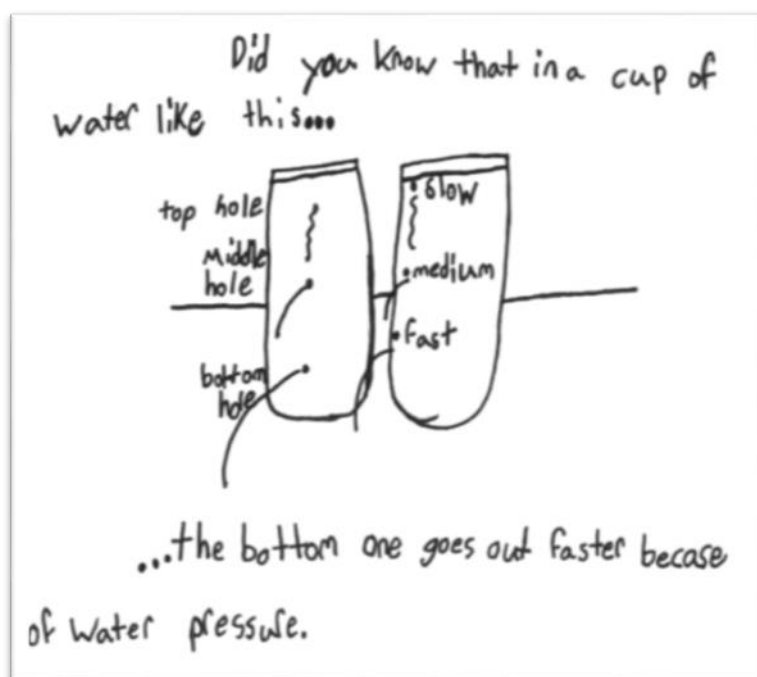 Did you know that in a cup of
water like this...
top hole
middle
hole
bottom
hole
slow
medium
fast
...the bottom one goes out faster becase
of water pressure.